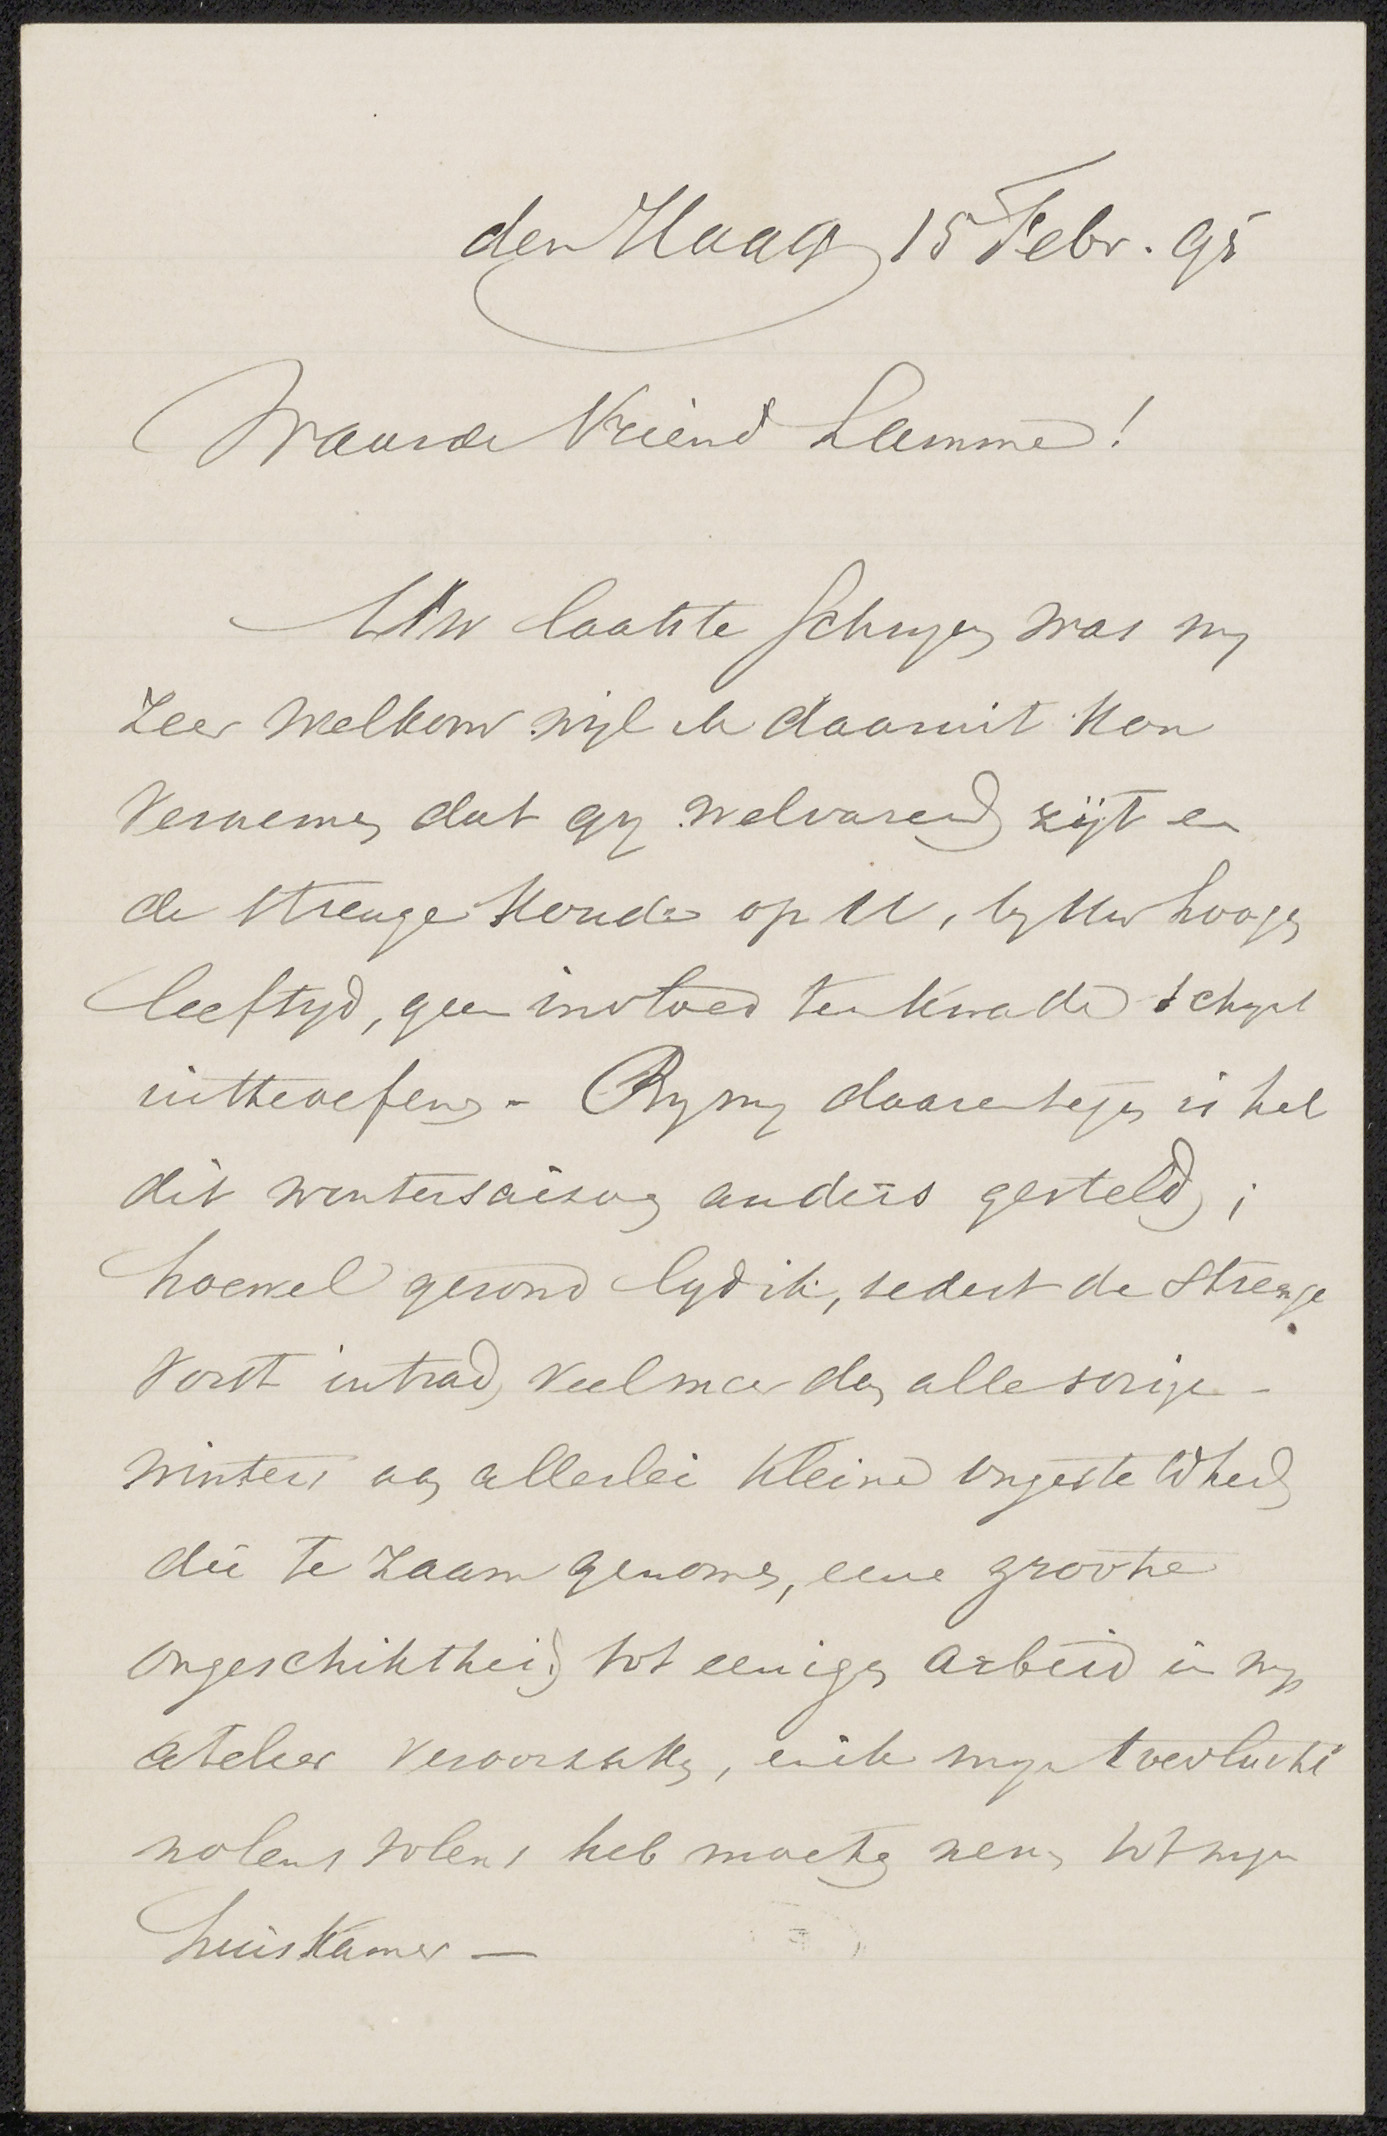 den Haag 15 Febr. 95
Waarde Vriend Lamme!
Uw laatste schrijven was my
zeer welkom wijl ik daaruit kon
vernemen dat gy welvarend zijt en
de strenge koude op U, by Uw hoogen
leeftyd, geen invloed ten kwade schynt
uitteoefenen - By my daarentegen is het
dit wintersaisoen anders gesteld;
hoewel gezond lyd ik, sedert de strenge
vorst intrad, veel meer dan alle vorige
winters aan allerlei kleine ongesteldheden
die te zaam genomen, eene groote
ongeschiktheid tot eenigen arbeid in myn
atelier veroorzaken, en ik myn toevlucht
nolens volens heb moeten nemen tot myn
huiskamer —